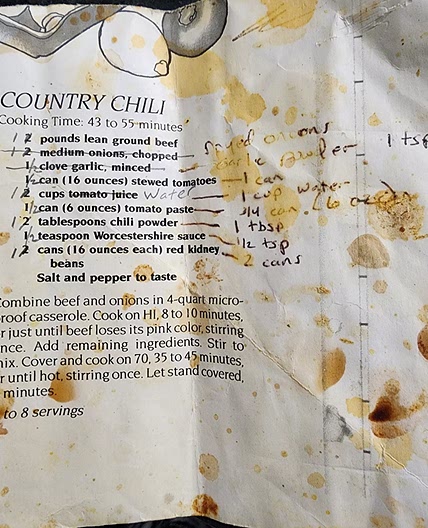 COUNTRY CHILI
Cooking Time: 43 to 55 minutes
1 2 pounds lean ground beef
1 2 medium onions, chopped onions
1/2 clove garlic, minced garlic powder 1 tsp
1/2 can (16 ounces) stewed tomatoes 1 can
1 2 cups tomato juice Water 1 cup water
1/2 can (6 ounces) tomato paste 3/4 can (6 oz)
1 2 tablespoons chili powder 1 tbsp
1/2 teaspoon Worcestershire sauce 1/2 tsp
1 2 cans (16 ounces each) red kidney 2 cans
beans
Salt and pepper to taste
Combine beef and onions in 4-quart micro-
roof casserole. Cook on HI, 8 to 10 minutes,
r just until beef loses its pink color, stirring
nce. Add remaining ingredients. Stir to
mix. Cover and cook on 70, 35 to 45 minutes,
r until hot, stirring once. Let stand covered,
minutes.
to 8 servings